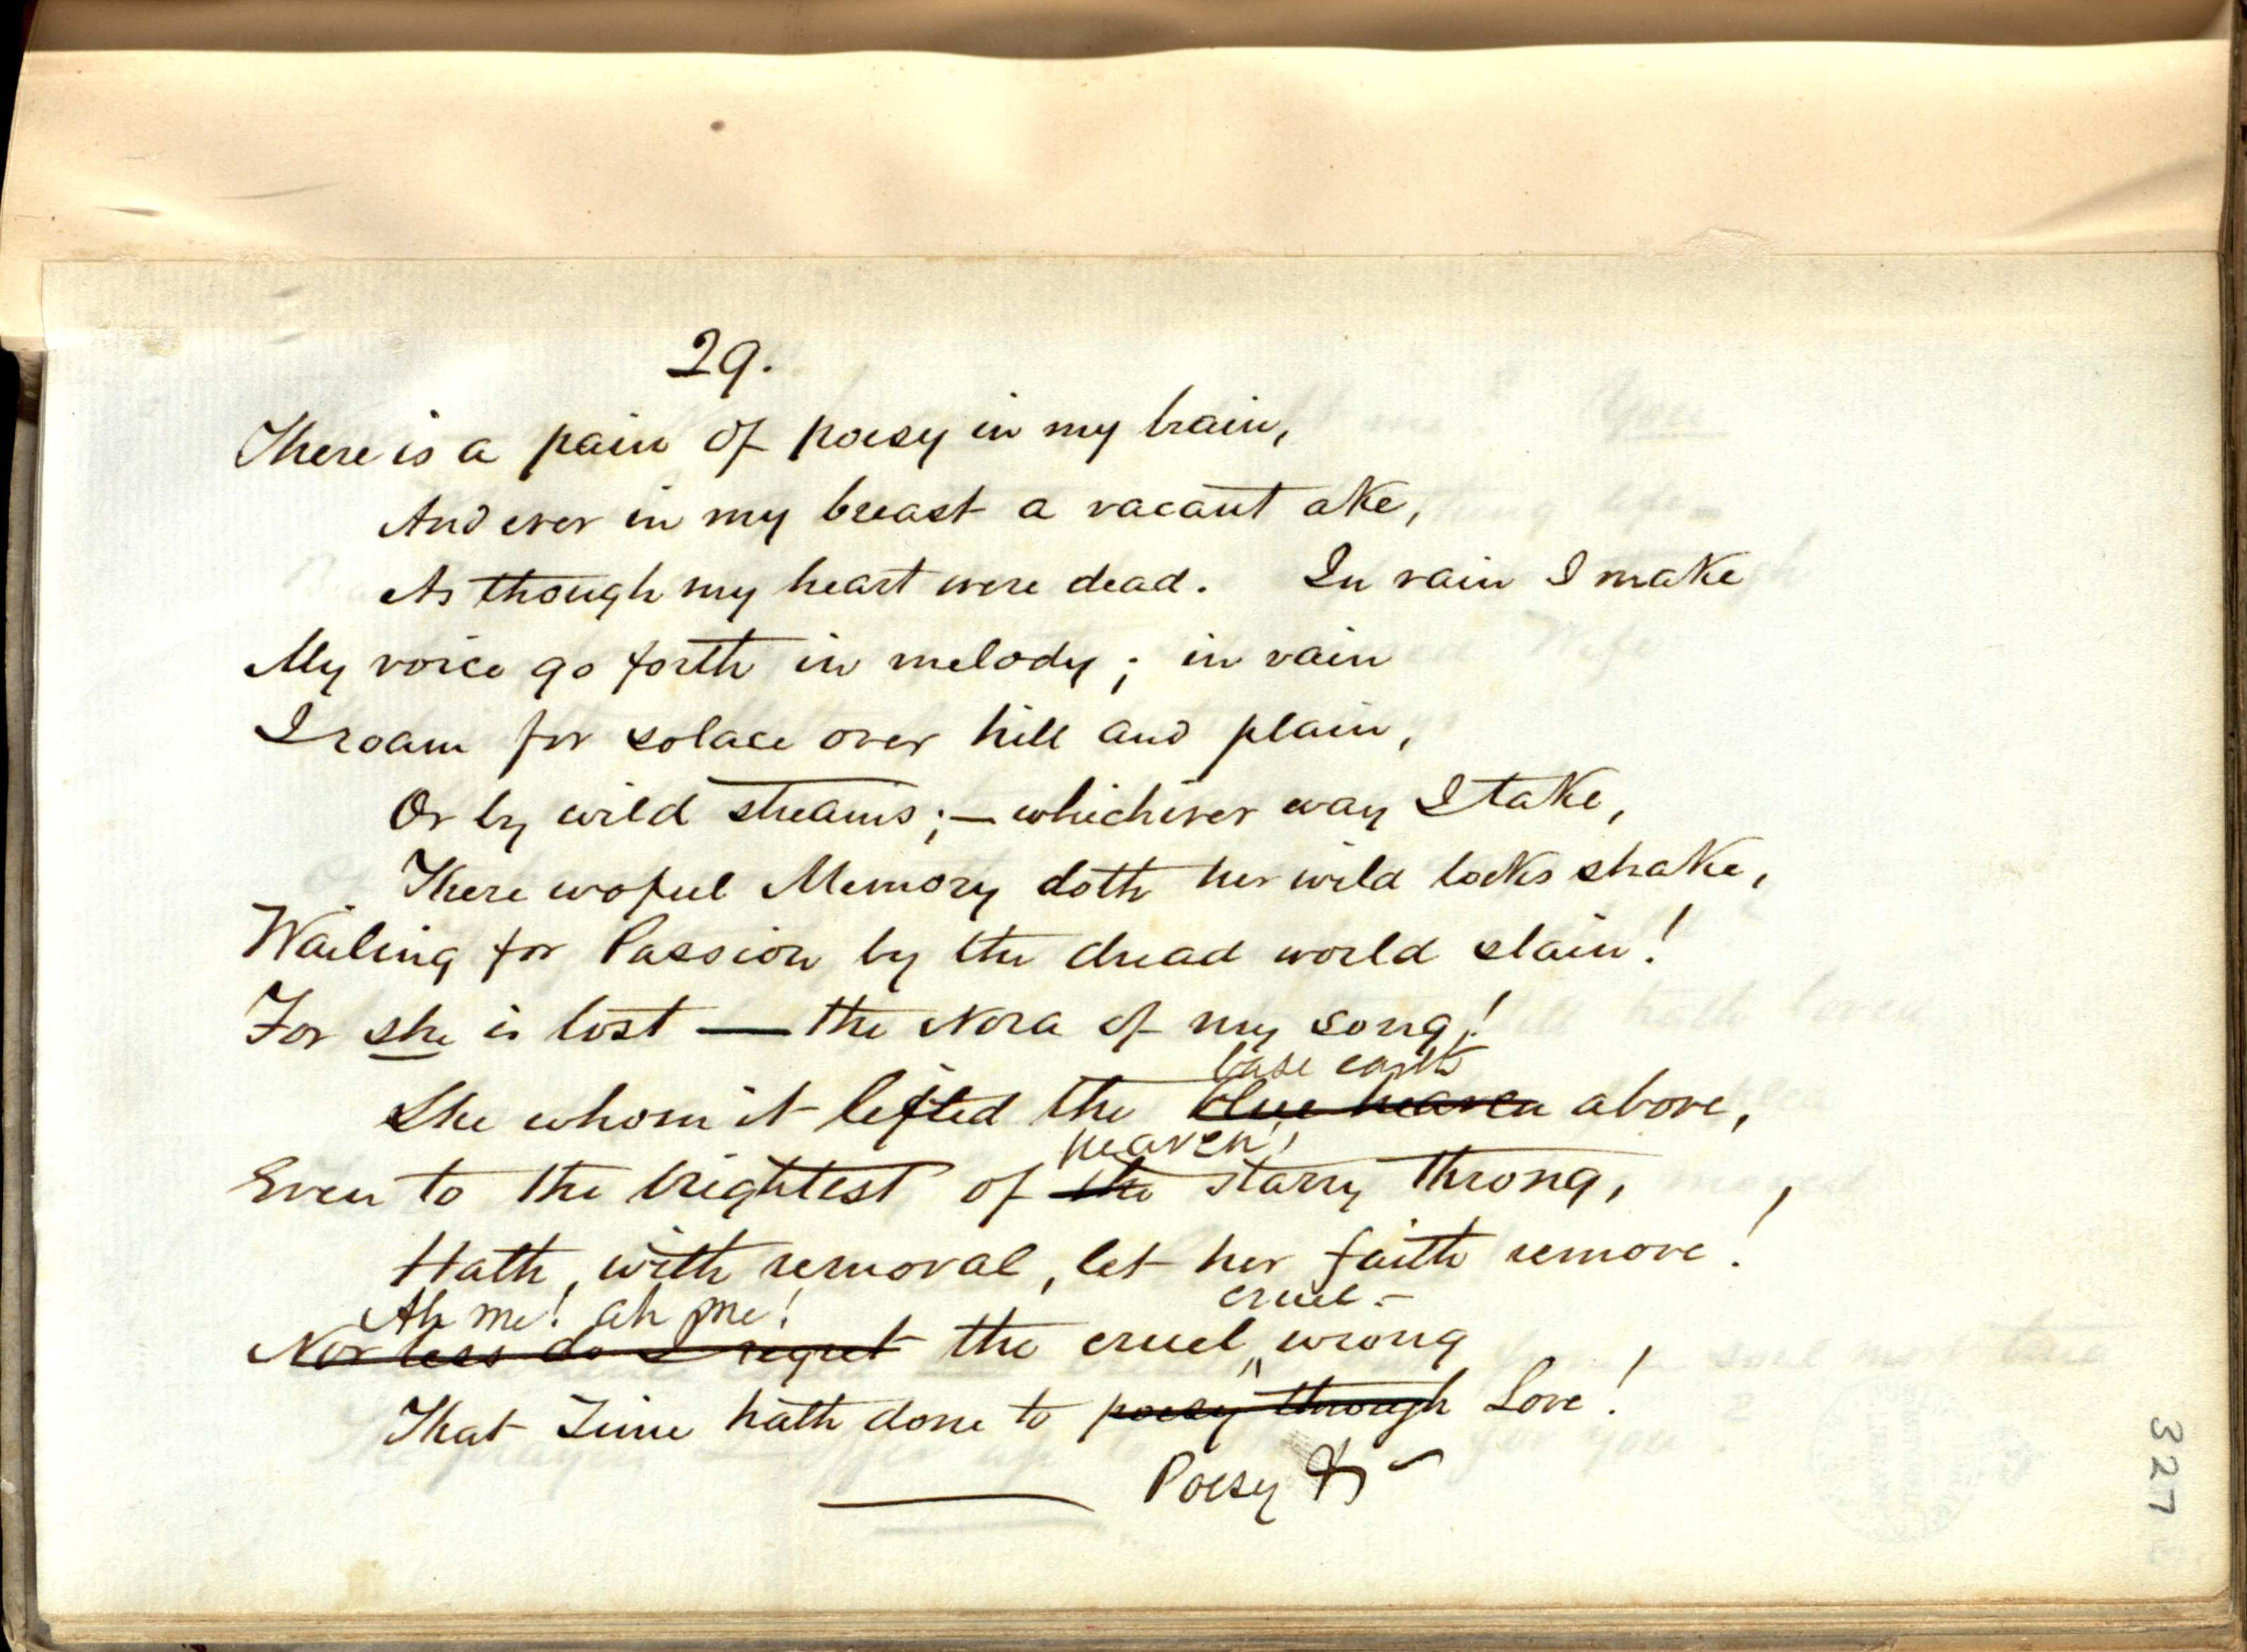 29.
There is a pain of poesy in my brain,
And ever in my breast a vacant ake,
As though my heart were dead. In vain I make
My voice go forth in melody; in vain
I roam for solace over hill and plain,
Or by wild streams;— whichever way I take,
There woful Memory doth her wild locks shake,
Wailing for Passion by the dread world slain!
For she is lost — the Nora of my song!
base earth
She whom it lifted the blue heaven above,
heaven's
Even to the brightest of the starry throng,
Hath, with removal, let her faith remove!
Ah me! ah me! cruel-
Nor less do I regret the cruel, wrong
That Time hath done to poesy through Love!
Poesy &
327